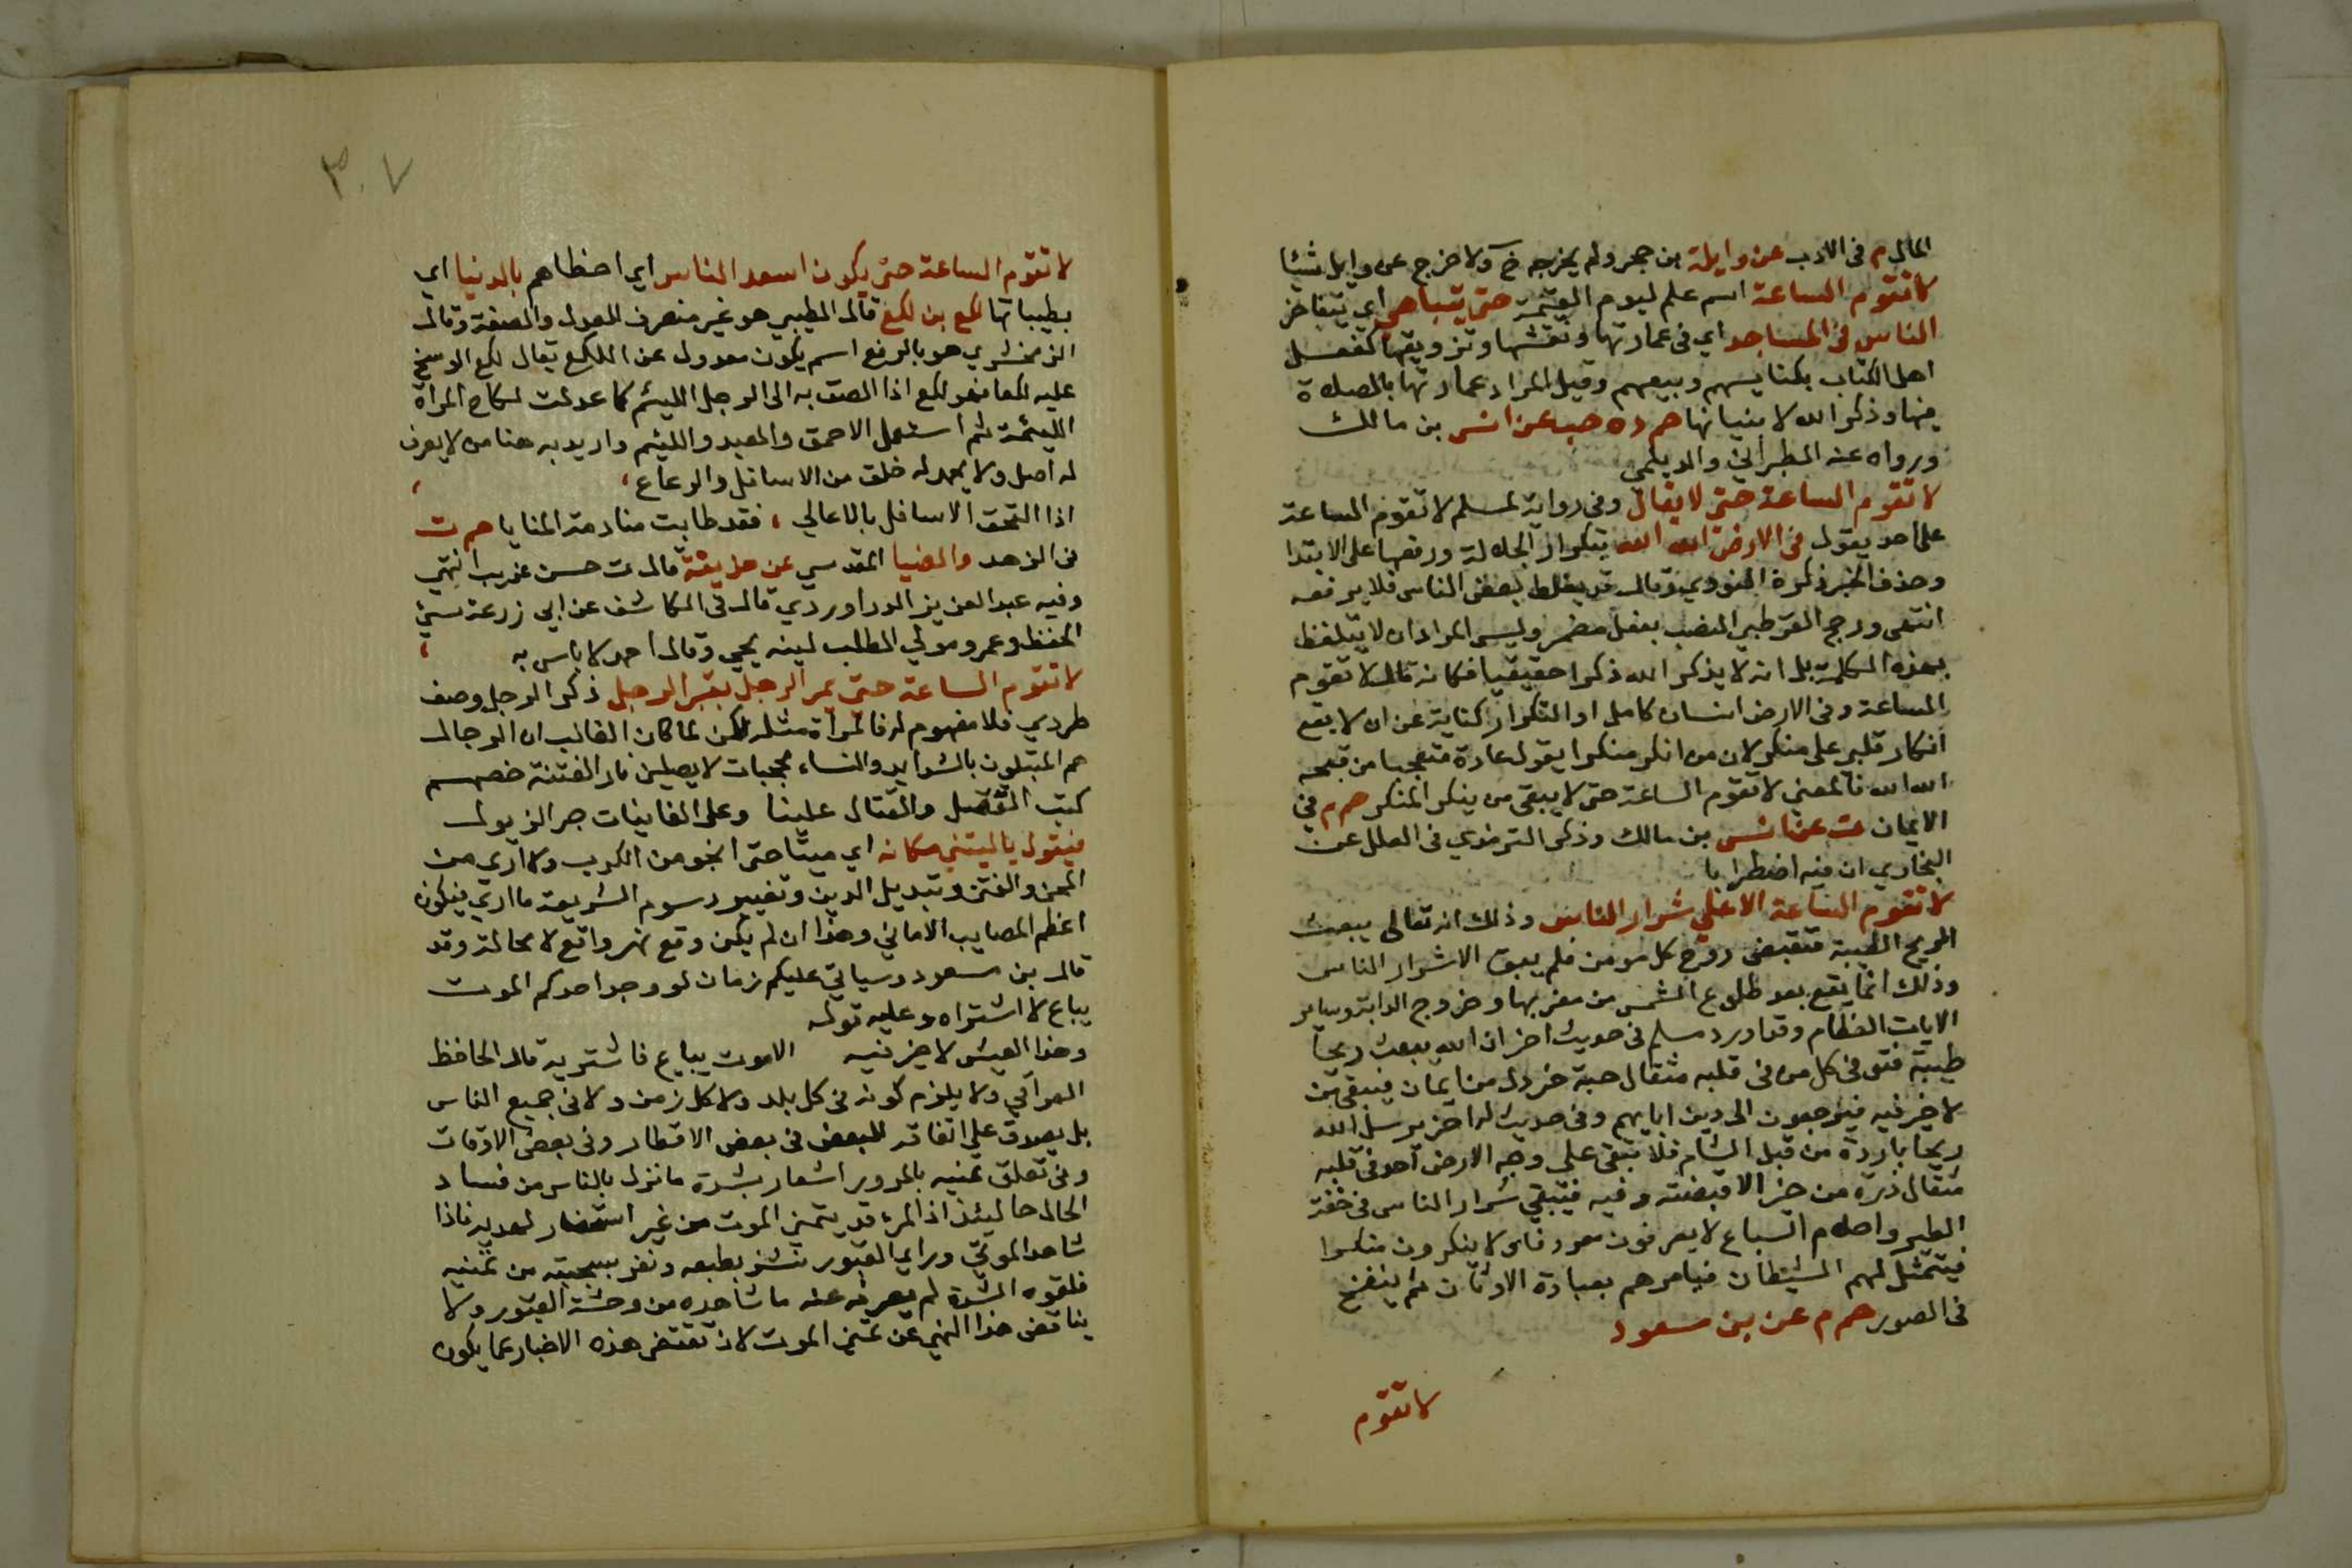 المال م فى الادب عن وايلة بن حجر ولم يخرجه خ ولا خرج عن وايل شيئا
لا تقوم الساعة اسم علم ليوم القيمة حتى يتباهى اي يتفاخر
الناس فى المساجد اي فى عمارتها ونقشها وتزويقها كفعل
اهل الكتاب بكنايسهم وبيعهم وقيل المراد عمارتها بالصلاة
فيها وذكر الله لا بنيانها حم د ه حب عن انس بن مالك
ورواه عنه الطبراني والديلمي
لا تقوم الساعة حتى لا يقال وفى رواية لمسلم لا تقوم الساعة
على احد يقول فى الارض الله الله بتكرار الجلالة ورفعها على الابتدا
وحذف الخبر ذكره النووي وقال قد يغلط بعض الناس فلا يرفعه
انتهى ورجح القرطبي النصب بفعل مضمر وليس المراد ان لا يتلفظ
بهذه الكلمة بل انه لا يذكر الله ذكرا حقيقيا فكانه قال لا تقوم
الساعة وفى الارض انسان كامل او التكرار كناية عن ان لا يقع
انكار قلبي على منكر لان من انكر منكرا يقول عادة متعجبا من قبحه
الله الله فالمعنى لا تقوم الساعة حتى لا يبقى من ينكر المنكر حم م فى
الايمان ت عن انس بن مالك وذكر الترمذي فى العلل عن
البخاري ان فيه اضطرابا
لا تقوم الساعة الا على شرار الناس وذلك انه تعالى يبعث
الريح الطيبة فتقبض روح كل مومن فلم يبق الا شرار الناس
وذلك انما يقع بعد طلوع الشمس من مغربها وخروج الدابة وساير
الايات العظام وقد اورد مسلم فى حديث اخر ان الله يبعث ريحا
طيبة فتوفى كل من فى قلبه مثقال حبة خردل من ايمان فيبقى من
لا خير فيه فيرجعون الى دين ابايهم وفى حديث له اخر يرسل الله
ريحا باردة من قبل الشام فلا تبقى على وجه الارض احد فى قلبه
مثقال ذرة من خير الا قبضته وفيه فيبقى شرار الناس فى خفة
الطير واحلام السباع لا يعرفون معروفا ولا ينكرون منكرا
فيتمثل لهم الشيطان فيامرهم بعبادة الاوثان ثم ينفخ
فى الصور حم م عن بن مسعود
لا تقوم
٣٠٧
لا تقوم الساعة حتى يكون اسعد الناس اي احظاهم بالدنيا اي
بطيباتها لكع بن لكع قال الطيبي هو غير منصرف للعدل والصفة وقال
الزمخشري هو بالرفع اسم يكون معدول عن اللكع يقال لكع الوسخ
عليه لكعا فهو لكع اذا لصق به الى الرجل اللئيم كما عدلت لكاع المراة
اللئيمة ثم استعمل الاحمق والعبد واللئيم واريد به هنا من لا يعرف
له اصل ولا يحمد له خلق من الاسافل والرعاع
اذا التحق الاسافل بالاعالي ، فقد طابت منادمة المنايا حم ت
فى الزهد والضيا المقدسي عن حذيفة قال ت حسن غريب انتهى
وفيه عبد العزيز الدراوردي قال فى الكاشف عن ابي زرعة سيئ
الحفظ وعمرو مولى المطلب لينه يحيى وقال احمد لا باس به
لا تقوم الساعة حتى يمر الرجل بقبر الرجل ذكر الرجل وصف
طردي فلا مفهوم له فالمرأة مثله لكن لما كان الغالب ان الرجال
هم المبتلون بالشدايد والنساء محجبات لا يصلين نار الفتنة خصهم
كتب القتل والقتال علينا وعلى الغانيات جر الذيول
فيقول يا ليتني مكانه اي ميتا حتى انجو من الكرب ولا ارى من
المحن والفتن وتبديل الدين وتغيير رسوم الشريعة ما ارى فيكون
اعظم المصايب الاماني وهذا ان لم يكن وقع فهو واقع لا محالة وقد
قال بن مسعود وسياتي عليكم زمان لو وجد احدكم الموت
يباع لا اشتراه وعليه قوله
وهذا العيش لا خير فيه الا موت يباع فاشتريه قال الحافظ
العراقي ولا يلزم كونه فى كل بلد ولا كل زمن ولا فى جميع الناس
بل يصدق على اتفاقه للبعض فى بعض الاقطار وفى بعض الاوقات
وفى تعلق تمنيه بالمرور اشعار بشدة ما نزل بالناس من فساد
الحال حالئذ اذ المرء قد يتمنى الموت من غير استحضار لهديه فاذا
شاهد الموتى وراي القبور نشز بطبعه ونفر بسجيته من تمنيه
فلقوة الشدة لم يصرفه عنه ما شاهده من وحشة القبور ولا
يناقض هذا النهي عن تمني الموت لان مقتضى هذه الاخبار عما يكون